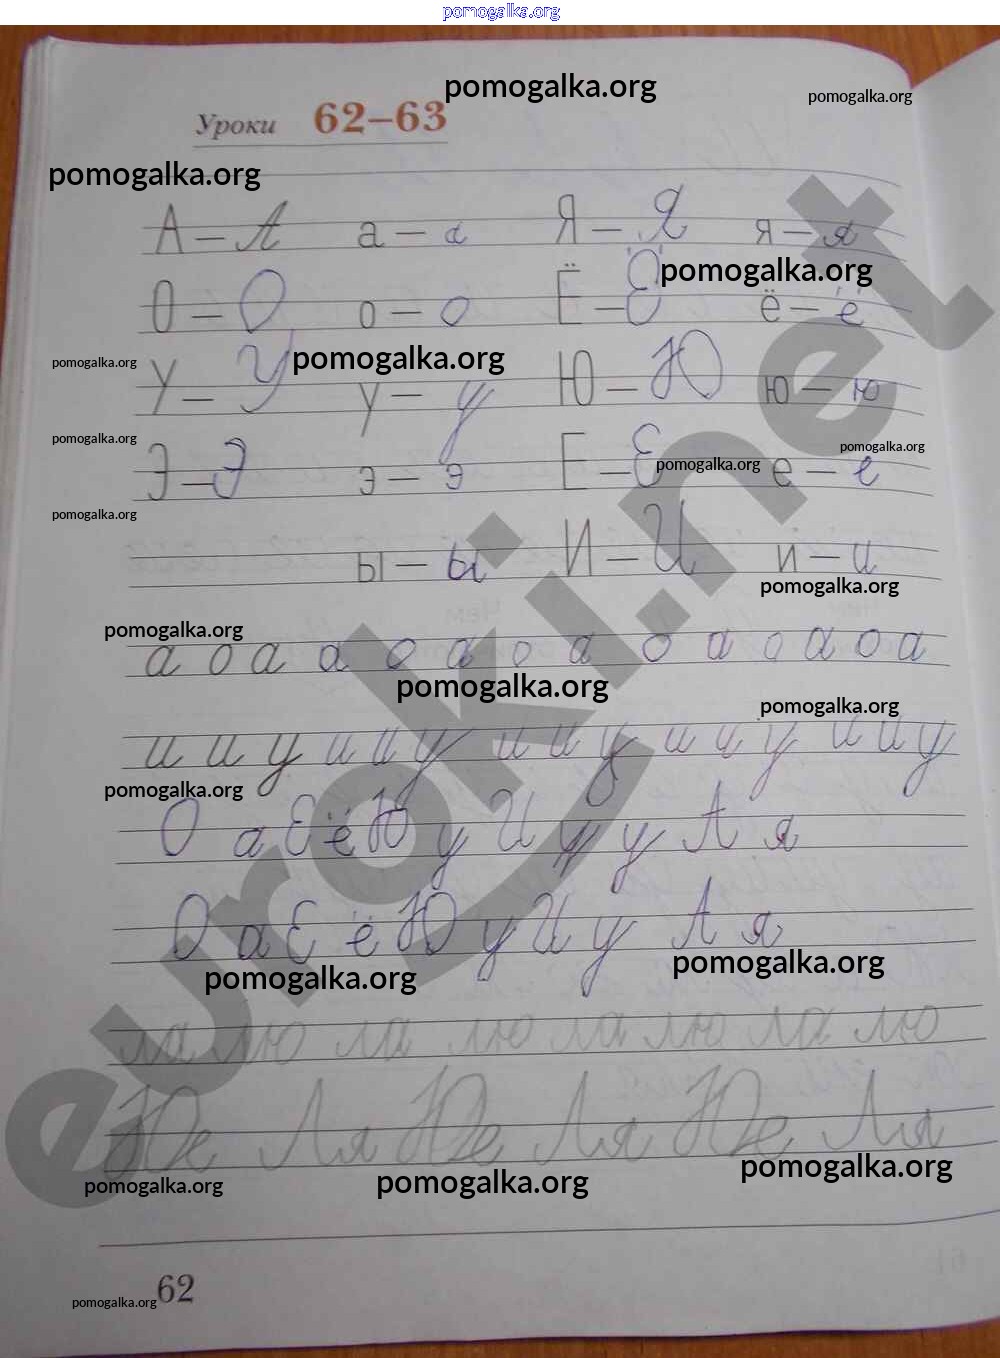 pomogalka.org
pomogalka.org
pomogalka.org
Уроки 62–63
pomogalka.org
А – А а – а Я – Я я – я
pomogalka.org
О – О о – о Ё – Ё ё – ё
pomogalka.org
pomogalka.org
У – У у – у Ю – Ю ю – ю
pomogalka.org
pomogalka.org
Э – Э э – э Е – Е е – е
pomogalka.org
pomogalka.org
ы – ы И – И и – и
pomogalka.org
pomogalka.org
а о а а о а о а о а о а о а
pomogalka.org
pomogalka.org
и и у и и у и и у и и у и и у
pomogalka.org
О а Е ё Ю у И у у А я
О а Е ё Ю у И у А я
pomogalka.org
pomogalka.org
ла лю ла лю ла лю ла лю
Юе Ля Юе Ля Юе Ля
pomogalka.org
pomogalka.org
pomogalka.org
62
pomogalka.org
euroki.net